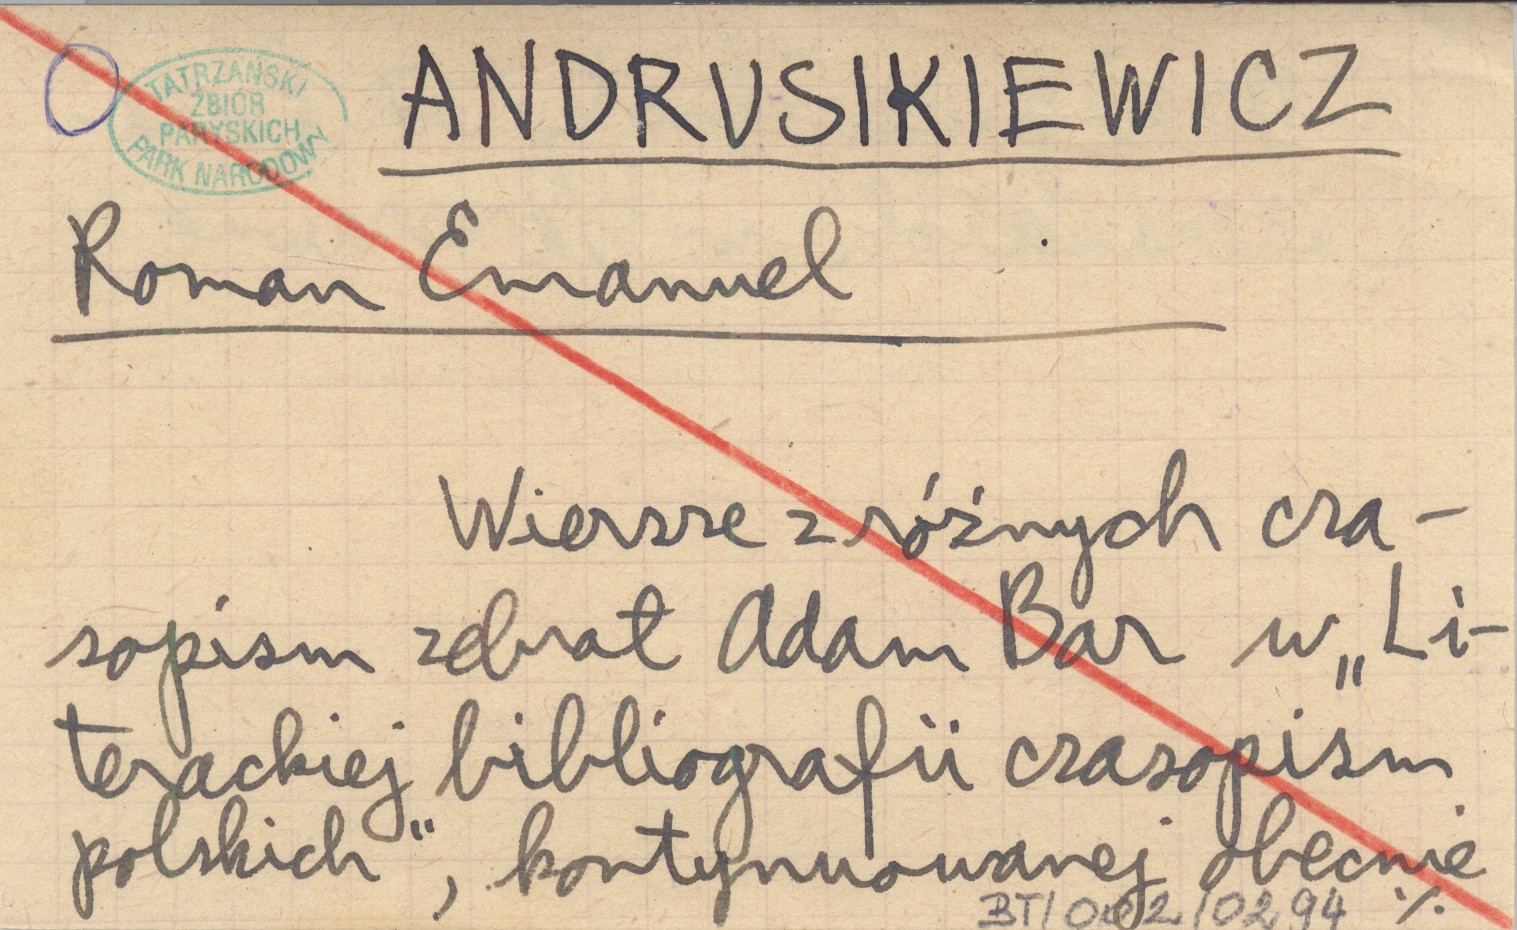 TATRZAŃSKI
ZBIÓR
PARYSKICH
PARK NARODOWY
ANDRUSIKIEWICZ
Roman Emanuel
Wiersze z różnych cza-
sopism zebrał Adam Bar w „Li-
terackiej bibliografii czasopism
polskich", kontynuowanej obecnie
BT/002/0294 ·/.